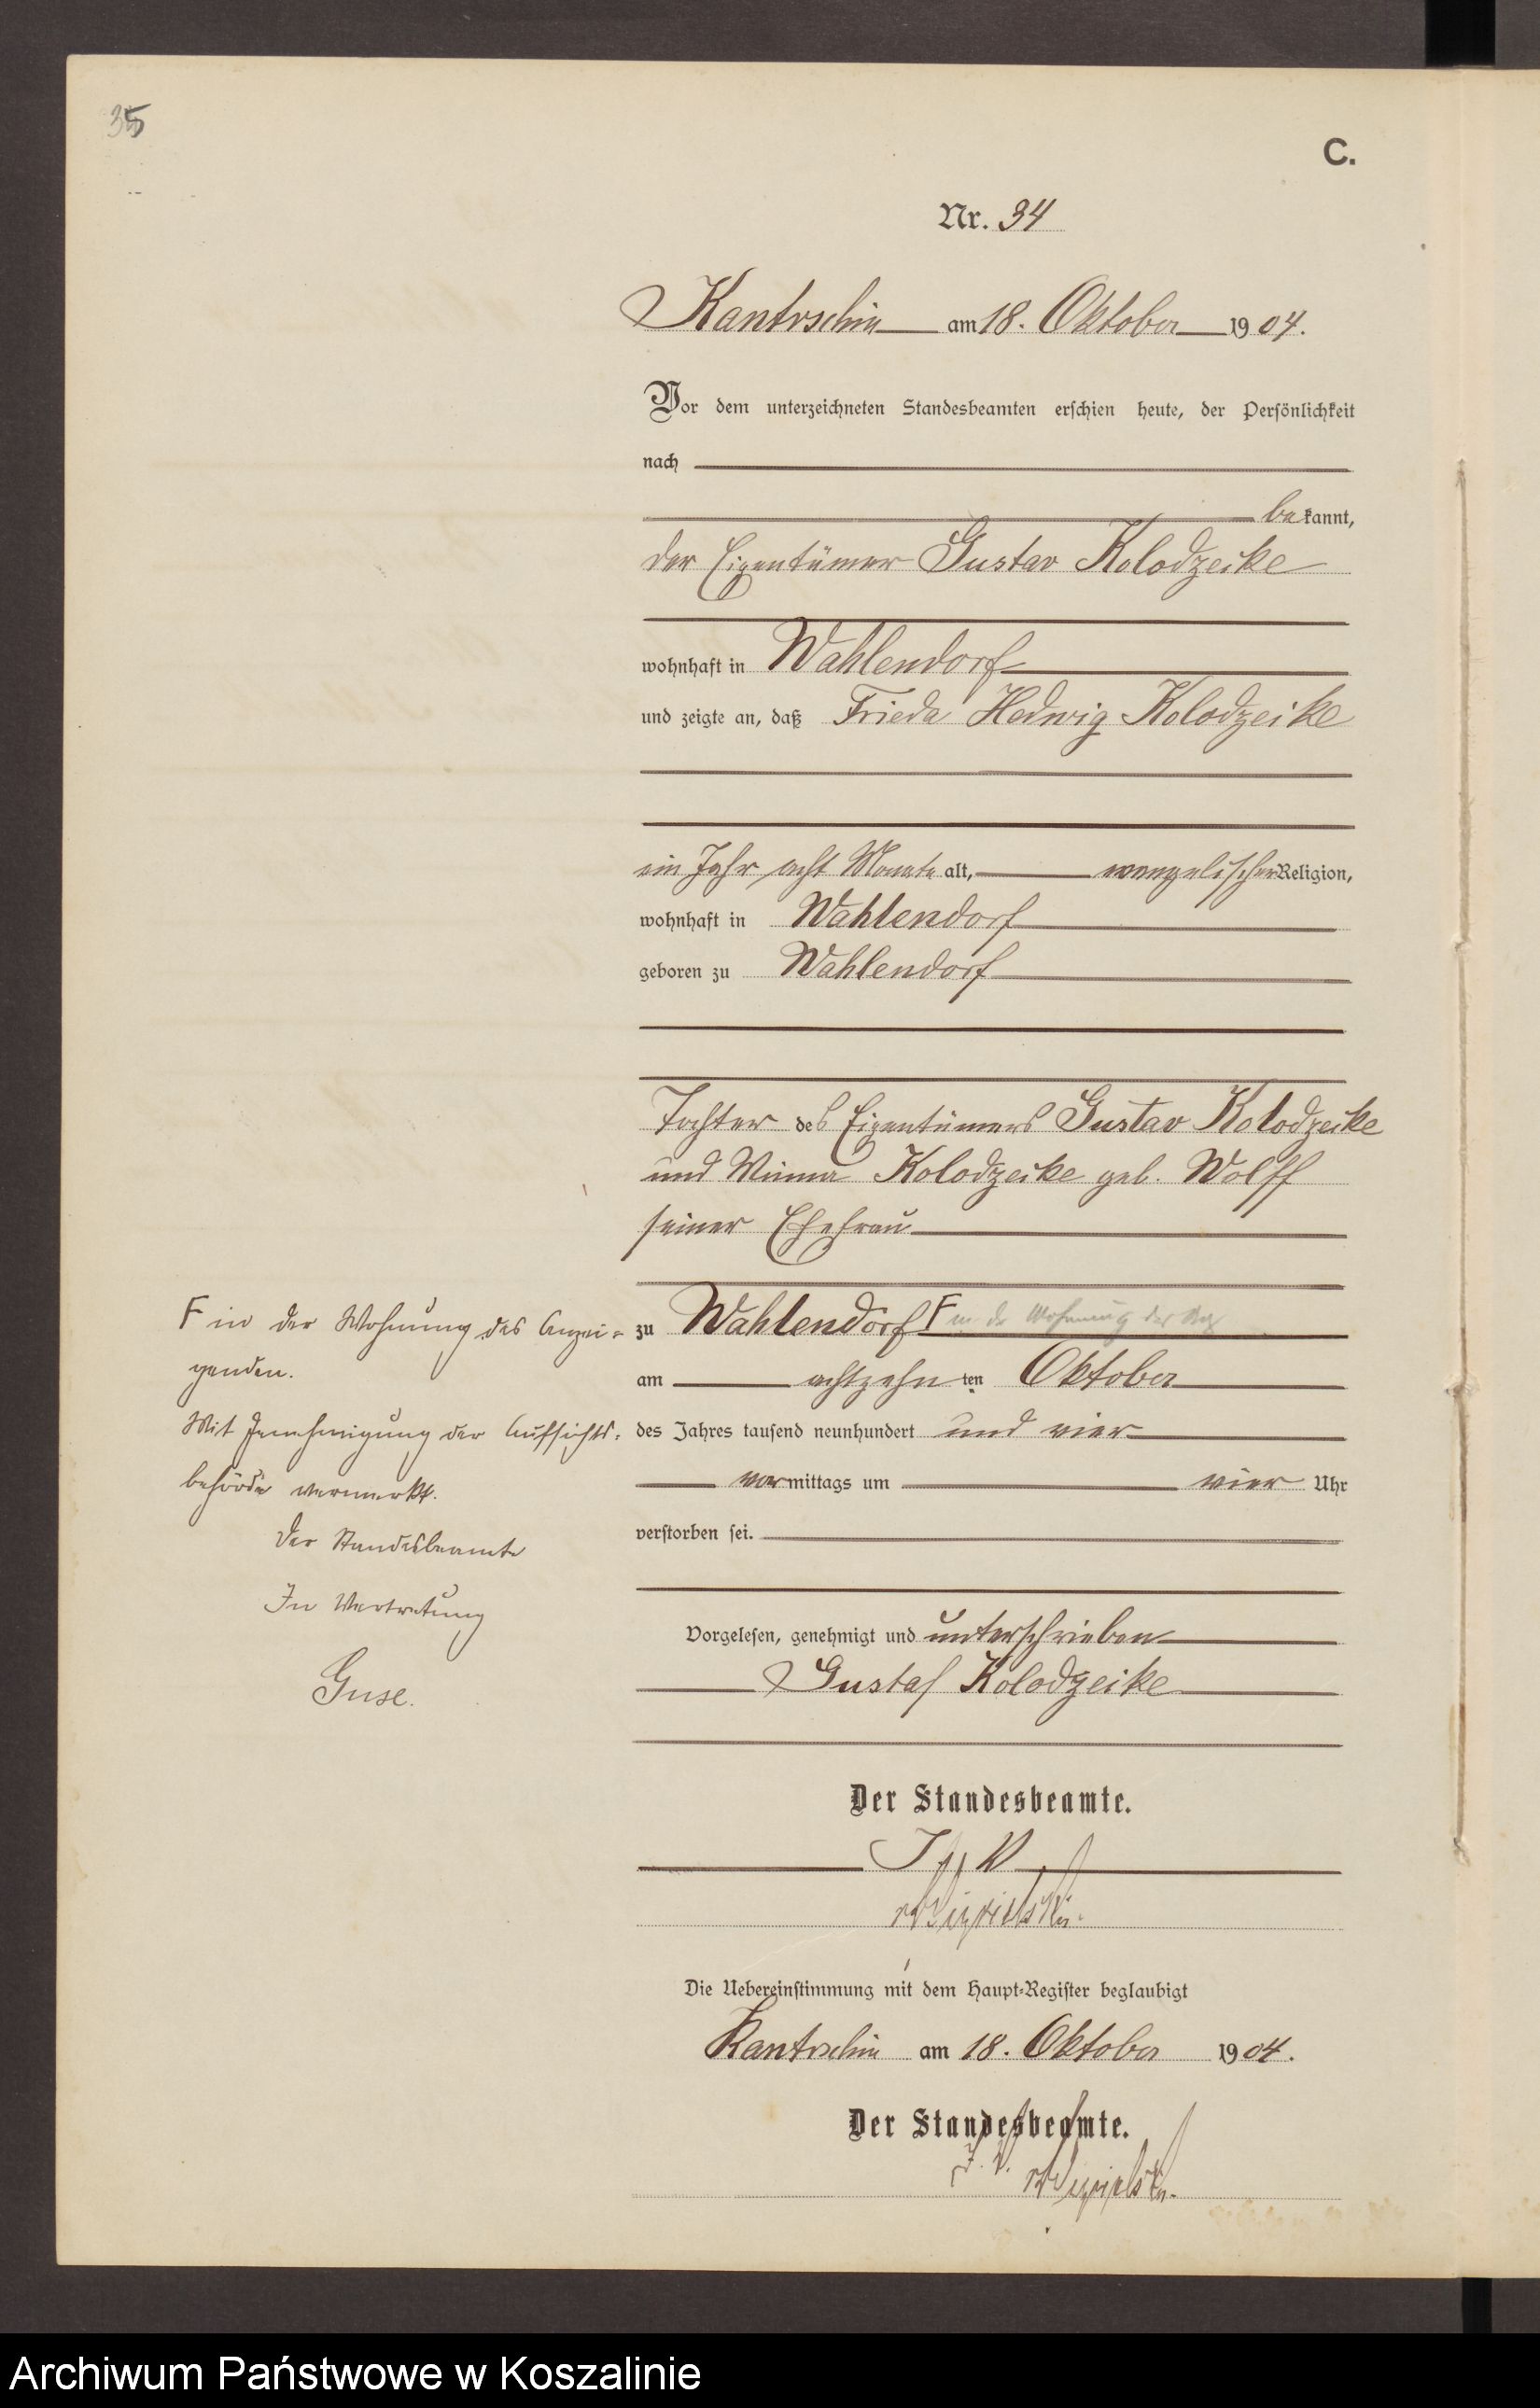 35
C.
Nr. 34
Kantrschin am 18. Oktober 1904.
Vor dem unterzeichneten Standesbeamten erschien heute, der Persönlichkeit
nach
bekannt,
der Eigentümer Gustav Kolodzeike
wohnhaft in Wahlendorf
und zeigte an, daß Frieda Hedwig Kolodzeike
ein Jahr acht Monate alt, evangelischer Religion,
wohnhaft in Wahlendorf
geboren zu Wahlendorf
Tochter des Eigentümers Gustav Kolodzeike
und Minna Kolodzeike geb. Wolff
seiner Ehefrau
zu Wahlendorf F in der Wohnung des Anz
am achtzehnten Oktober
des Jahres tausend neunhundert und vier
vormittags um vier Uhr
verstorben sei.
F in der Wohnung des Anzei-
genden.
Mit Genehmigung der Aufsichts-
behörde vermerkt.
Der Standesbeamte
In Vertretung
Guse.
Vorgelesen, genehmigt und unterschrieben
Gustaf Kolodzeike
Der Standesbeamte.
J. V.
Die Uebereinstimmung mit dem Haupt-Register beglaubigt
Kantrschin am 18. Oktober 1904.
Der Standesbeamte.
J. V.
Archiwum Państwowe w Koszalinie